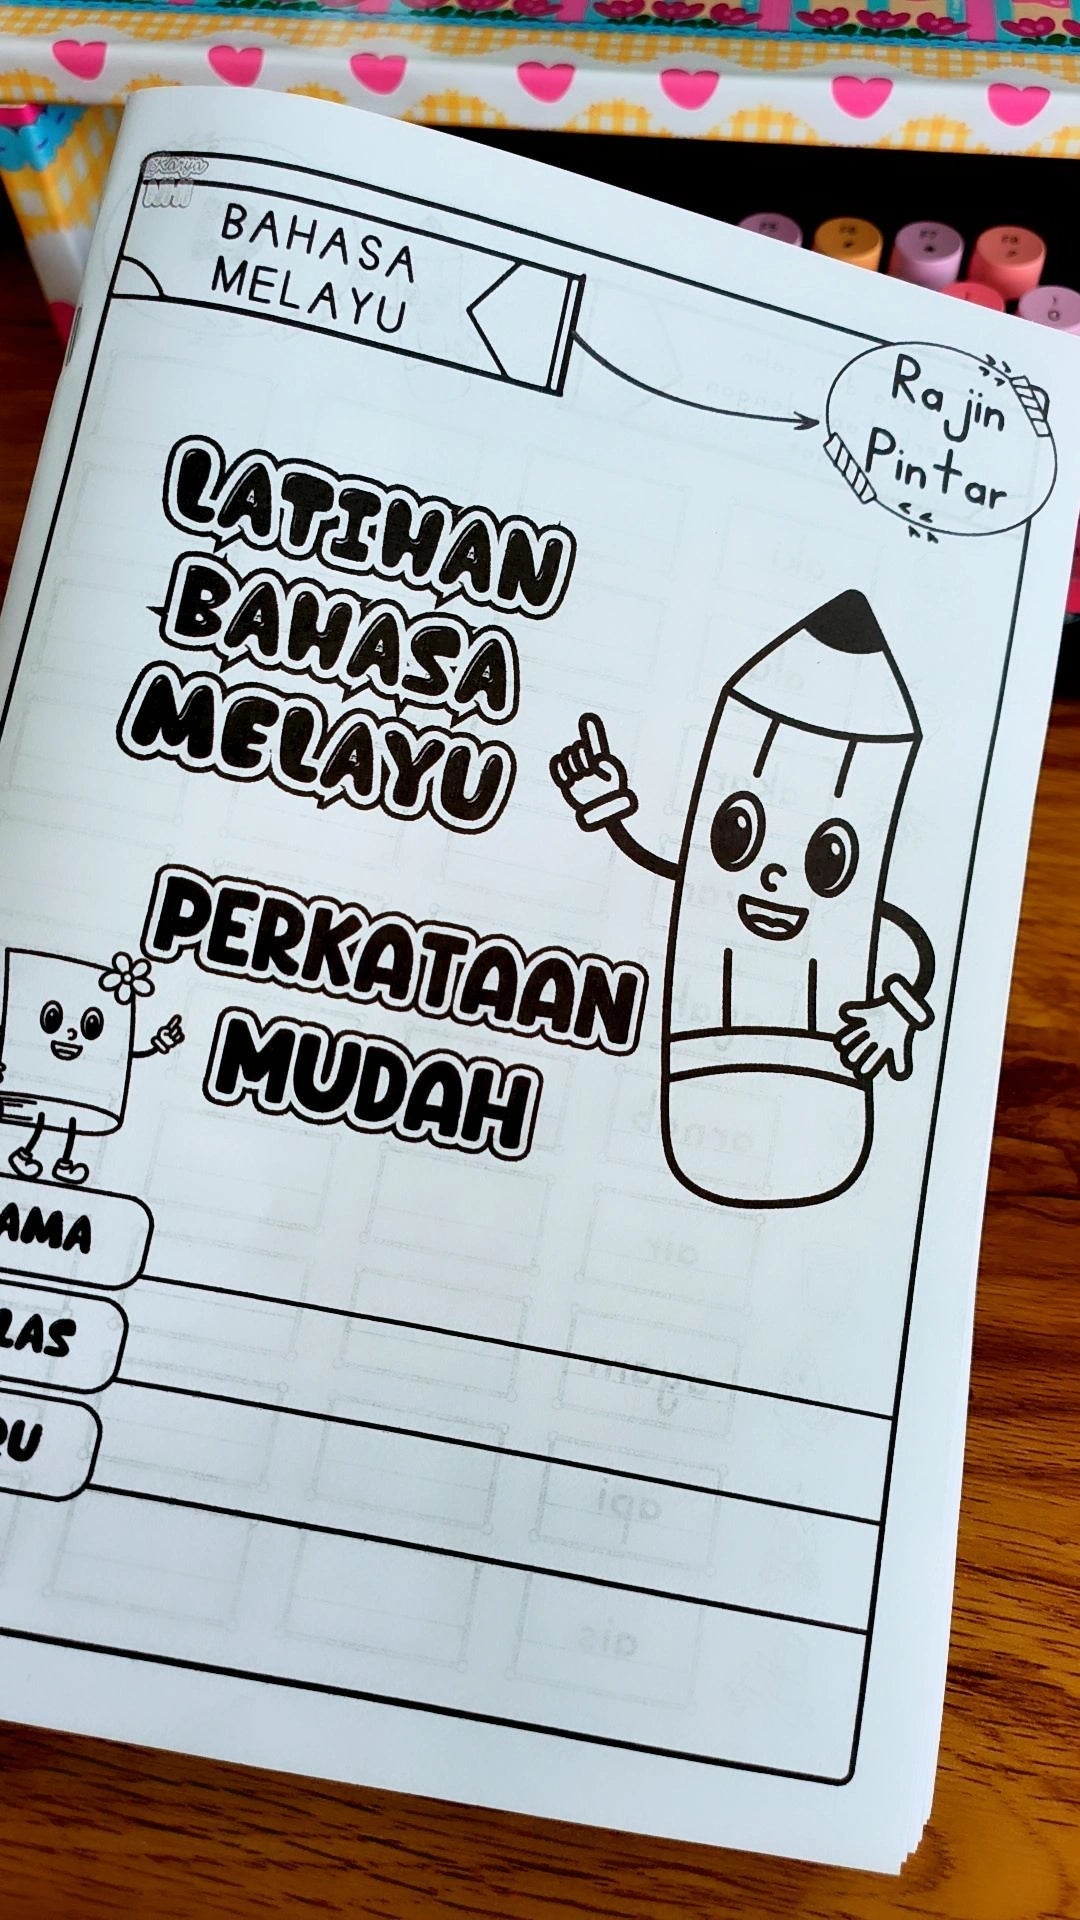 Karya
NHI
BAHASA
MELAYU
Rajin
Pintar
LATIHAN
BAHASA
MELAYU
PERKATAAN
MUDAH
AMA
LAS
RU